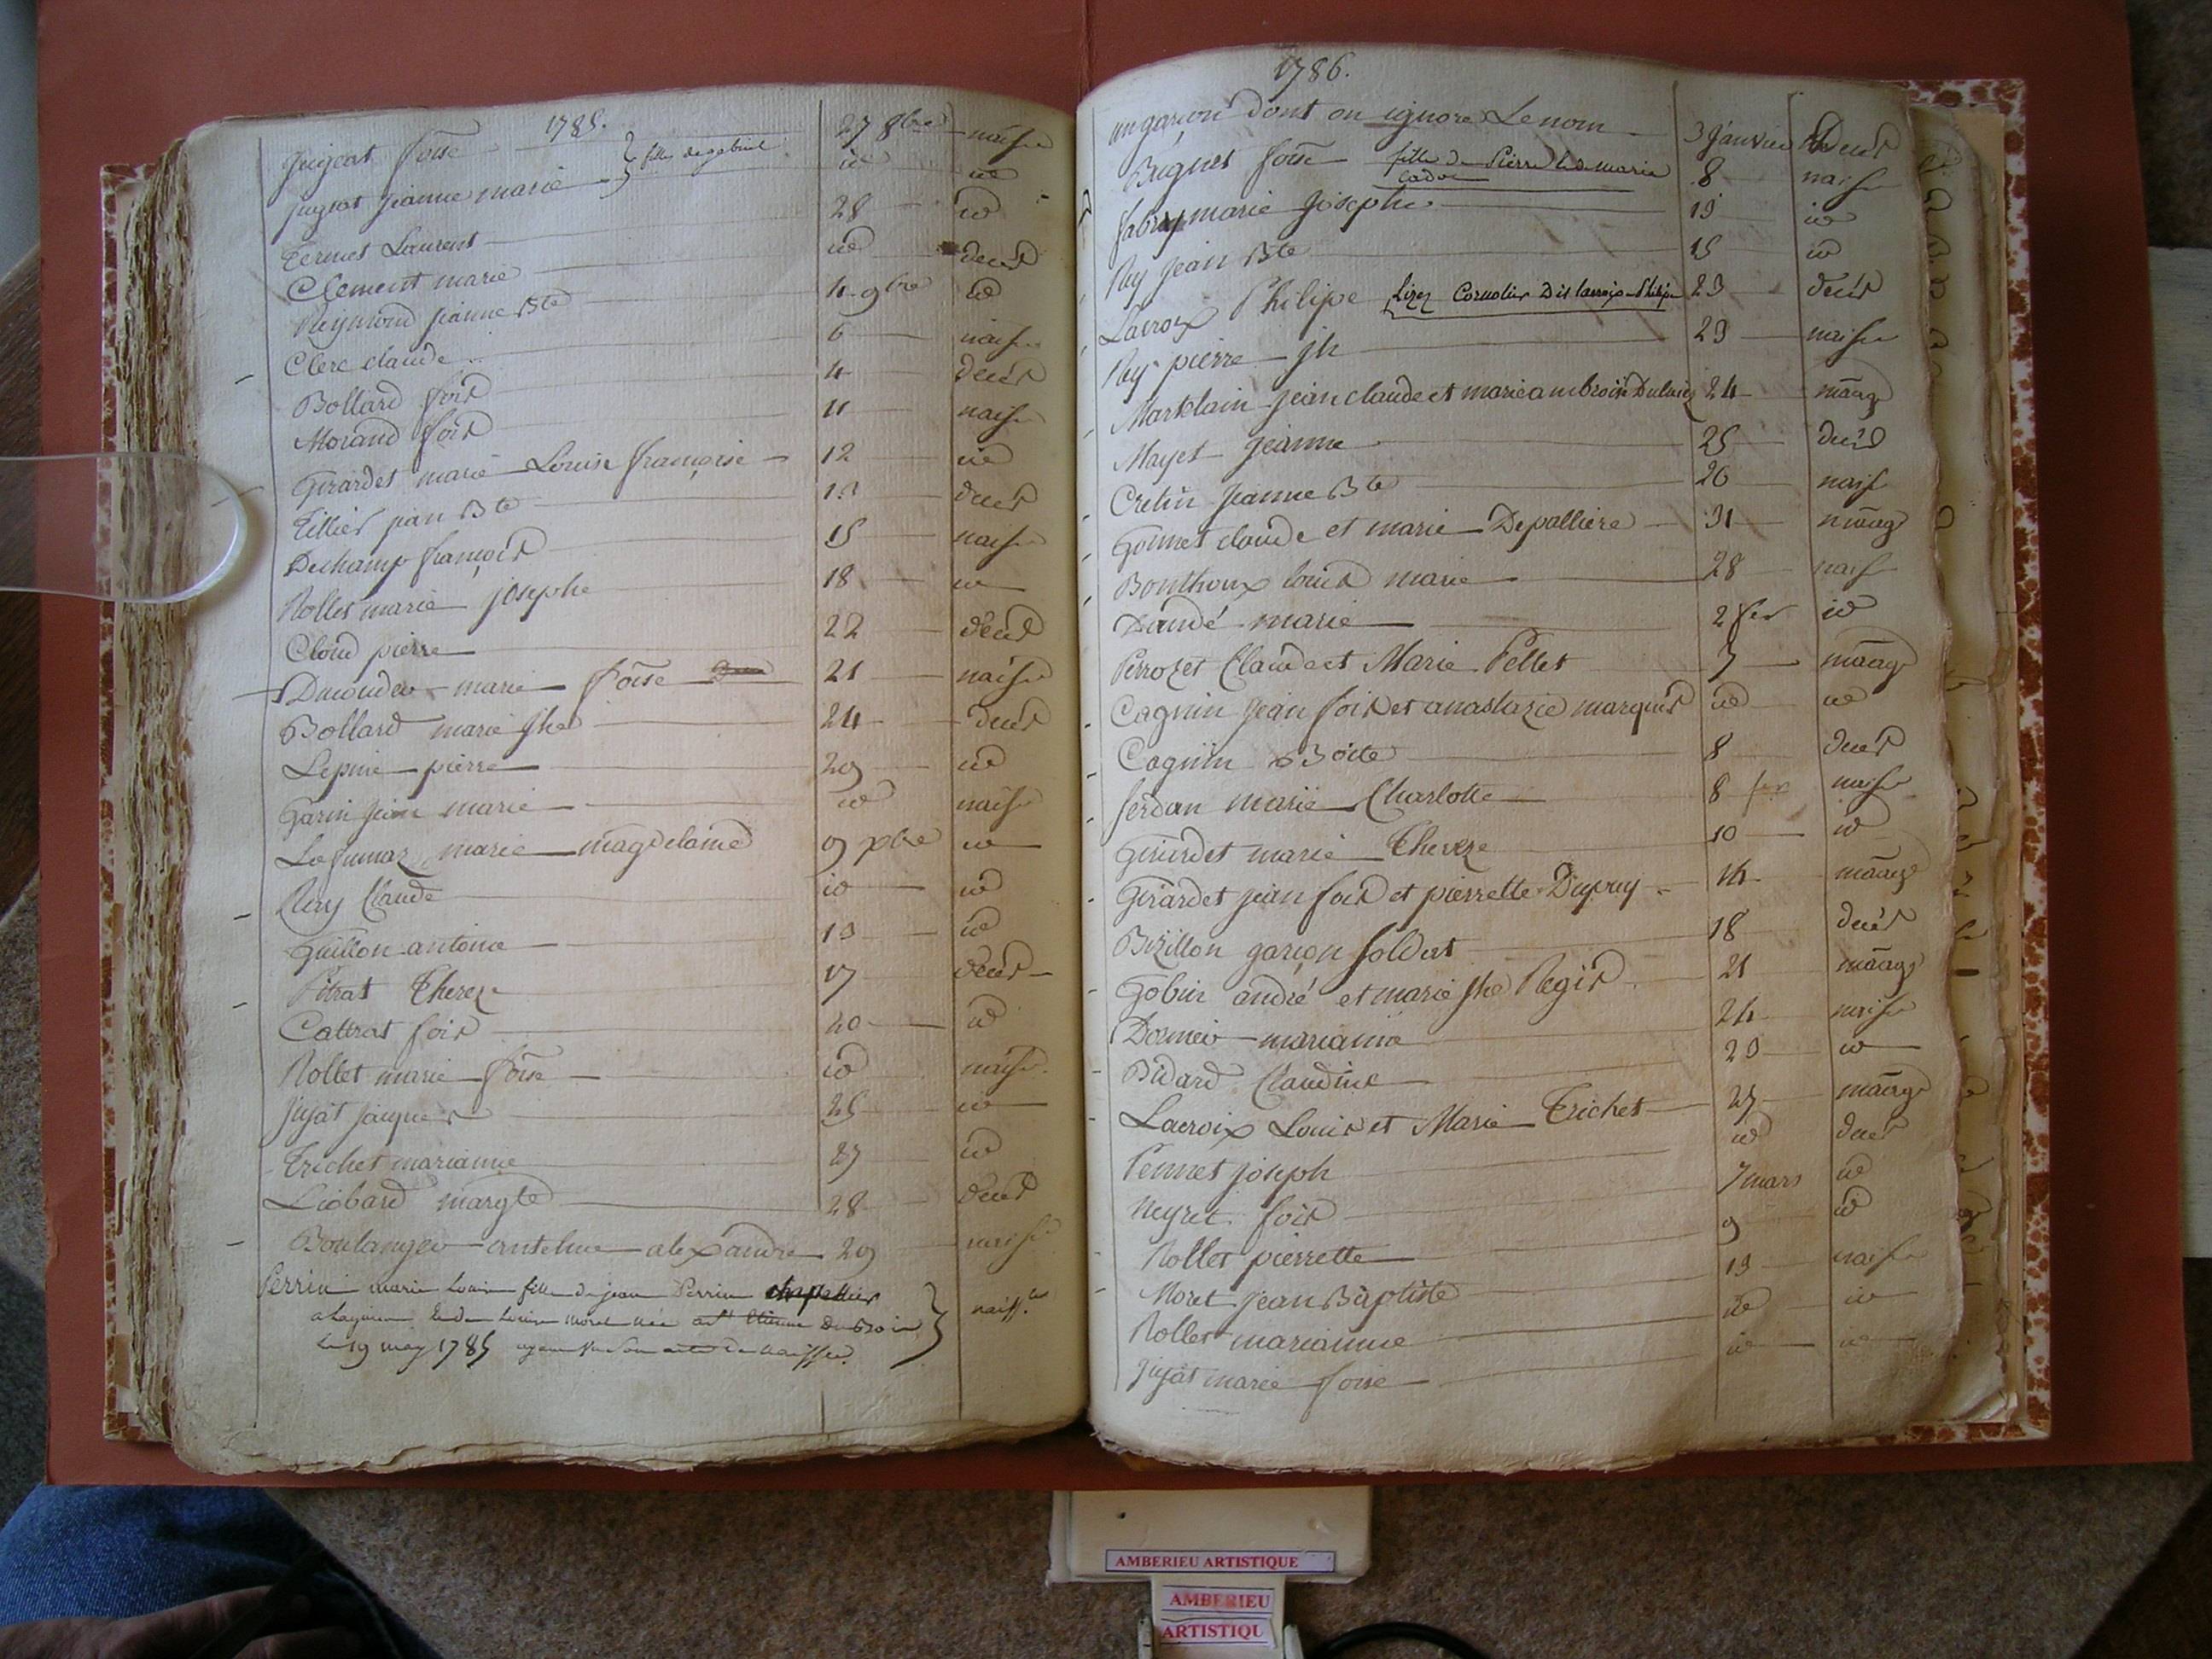 1785.
Jujeat foise 27 8bre naisce
Jujeat jeanne marie filles de gabriel id id
Termet Laurent 28 id
Clement marie id deces
Reymond jeanne Bte 4 9bre id
Clerc claude 6 naisce
Bollard fois 4 deces
Morand fois 11 naisce
Girardet marie Louise françoise 12 id
Tillier jean Bte 13 deces
Deschamp françois 15 naisce
Rollet marie josephe 18 id
Cloud pierre 22 deces
marie foise 21 naisce
Bollard marie jhe 24 deces
Lepine pierre 29 id
Garin jean marie id naisce
Lafumaz marie magdelaine 9 xbre id
Rey Claude id id
Guillon antoine 13 id
Pitrat Thereze 17 deces
Cattrat fois 20 id
Rollet marie foise id naisce
Jujat jacques 25 id
Trichet marianne 27 id
Liobard margte 28 deces
Boulanger antelme alexandre 29 naisce
Perrin marie Louise fille de jean Perrin chapellier
a Lagnieu et de Louise Morel née a St Etienne du Bois
le 19 may 1785 naiss.ce
1786.
un garçon dont on ignore Le nom 3 Janvier Deces
Buguet foise fille de Pierre et de marie 8 naisce
Cadoz
fabry marie josephe 19 id
Rey jean Bte 15 id
Lacroix Philipe Lizez Cornolier Dit lacroix Philipe 23 deces
Rey pierre jh 23 naisce
Martelain jean claude et marie ambroise 24 mariage
Mayet jeanne 25 deces
Cretin jeanne Bte 26 naisce
Gonnet claude et marie Depalliere 31 mariage
Bonthoux louis marie 28 naisce
Daudé marie 2 fev id
Perrozet Claude et Marie Pellet 7 mariage
Cagnin jean fois et anastazie marquis id id
Cagnin Boite 8 deces
ferdan marie Charlotte 8 fev naisce
Girardet marie Thereze 10 id
Girardet jean fois et pierrette Dupuy 14 mariage
Bizillon garçon soldat 18 deces
Gobin andré et marie jhe Regis 21 mariage
Dormier marianne 24 naisce
Bidard Claudine 23 id
Lacroix Louis et Marie Trichet 27 mariage
Pennet joseph id deces
Neyret fois 7 mars id
Rollet pierrette 9 id
Moret jean Baptiste 13 naisce
Rollet marianne id id
Jujat marie foise id id
AMBERIEU ARTISTIQUE
AMBERIEU
ARTISTIQU